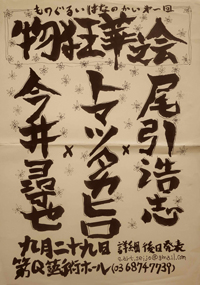 ものぐるいはなのかい 第一回
物狂華絵
尾引浩志
×
トマツタカヒロ
×
今井尋也
九月二十九日 詳細後日発表
第Q藝術ホール (03 6874 7739)